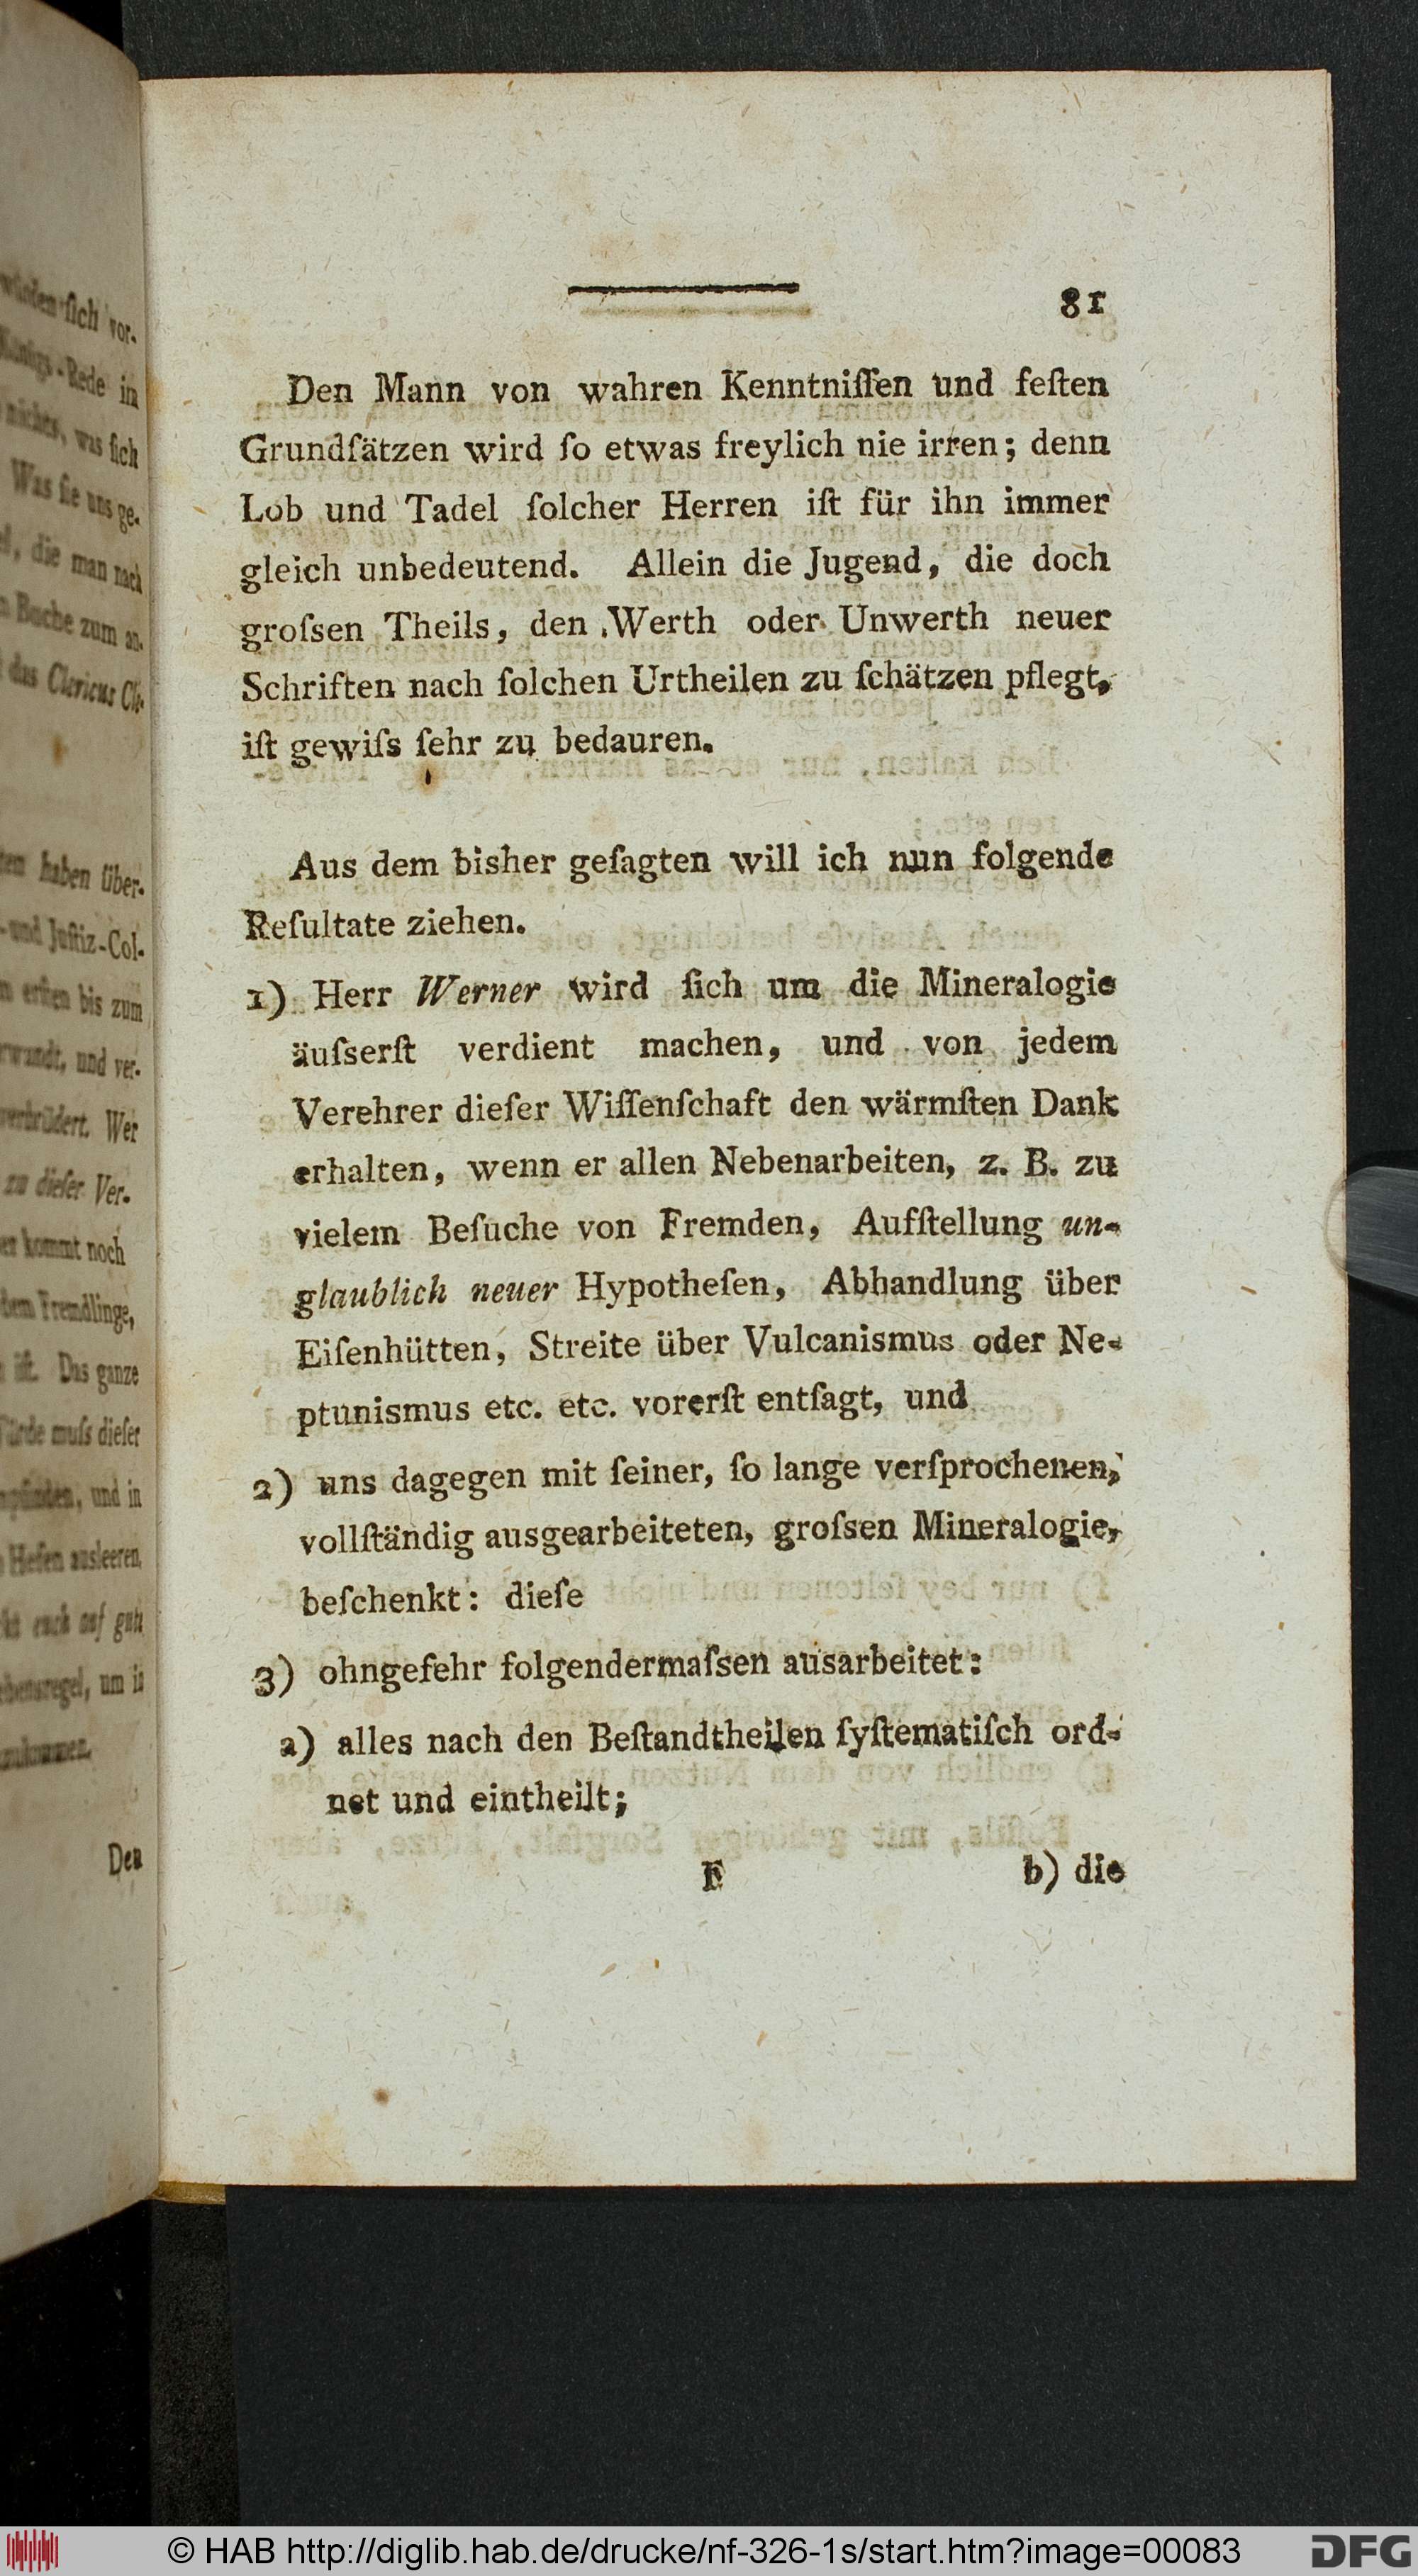 81
Den Mann von wahren Kenntniſſen und feſten
Grundſätzen wird ſo etwas freylich nie irren; denn
Lob und Tadel ſolcher Herren iſt für ihn immer
gleich unbedeutend. Allein die Jugend, die doch
groſsen Theils, den Werth oder Unwerth neuer
Schriften nach ſolchen Urtheilen zu ſchätzen pflegt,
iſt gewiſs ſehr zu bedauren.
Aus dem bisher geſagten will ich nun folgende
Reſultate ziehen.
1) Herr Werner wird ſich um die Mineralogie
äuſserſt verdient machen, und von jedem
Verehrer dieſer Wiſſenſchaft den wärmſten Dank
erhalten, wenn er allen Nebenarbeiten, z. B. zu
vielem Beſuche von Fremden, Aufſtellung un-
glaublich neuer Hypotheſen, Abhandlung über
Eiſenhütten, Streite über Vulcanismus oder Ne-
ptunismus etc. etc. vorerſt entſagt, und
2) uns dagegen mit ſeiner, ſo lange verſprochenen,
vollſtändig ausgearbeiteten, groſsen Mineralogie,
beſchenkt: dieſe
3) ohngefehr folgendermaſsen ausarbeitet:
a) alles nach den Beſtandtheilen ſyſtematiſch ord-
net und eintheilt;
F b) die
ſich vor-
Rede in
nichts, was ſich
Was ſie uns ge-
die man nach
Buche zum an-
das Clericus Cle-
haben über-
und Juſtiz-Col-
erſten bis zum
und ver-
Wer
zu dieſer Ver-
kommt noch
Fremdlinge,
iſt. Das ganze
muſs dieſer
und in
Hefen ausleeren,
euch auf gute
um in
Den
© HAB http://diglib.hab.de/drucke/nf-326-1s/start.htm?image=00083
DFG